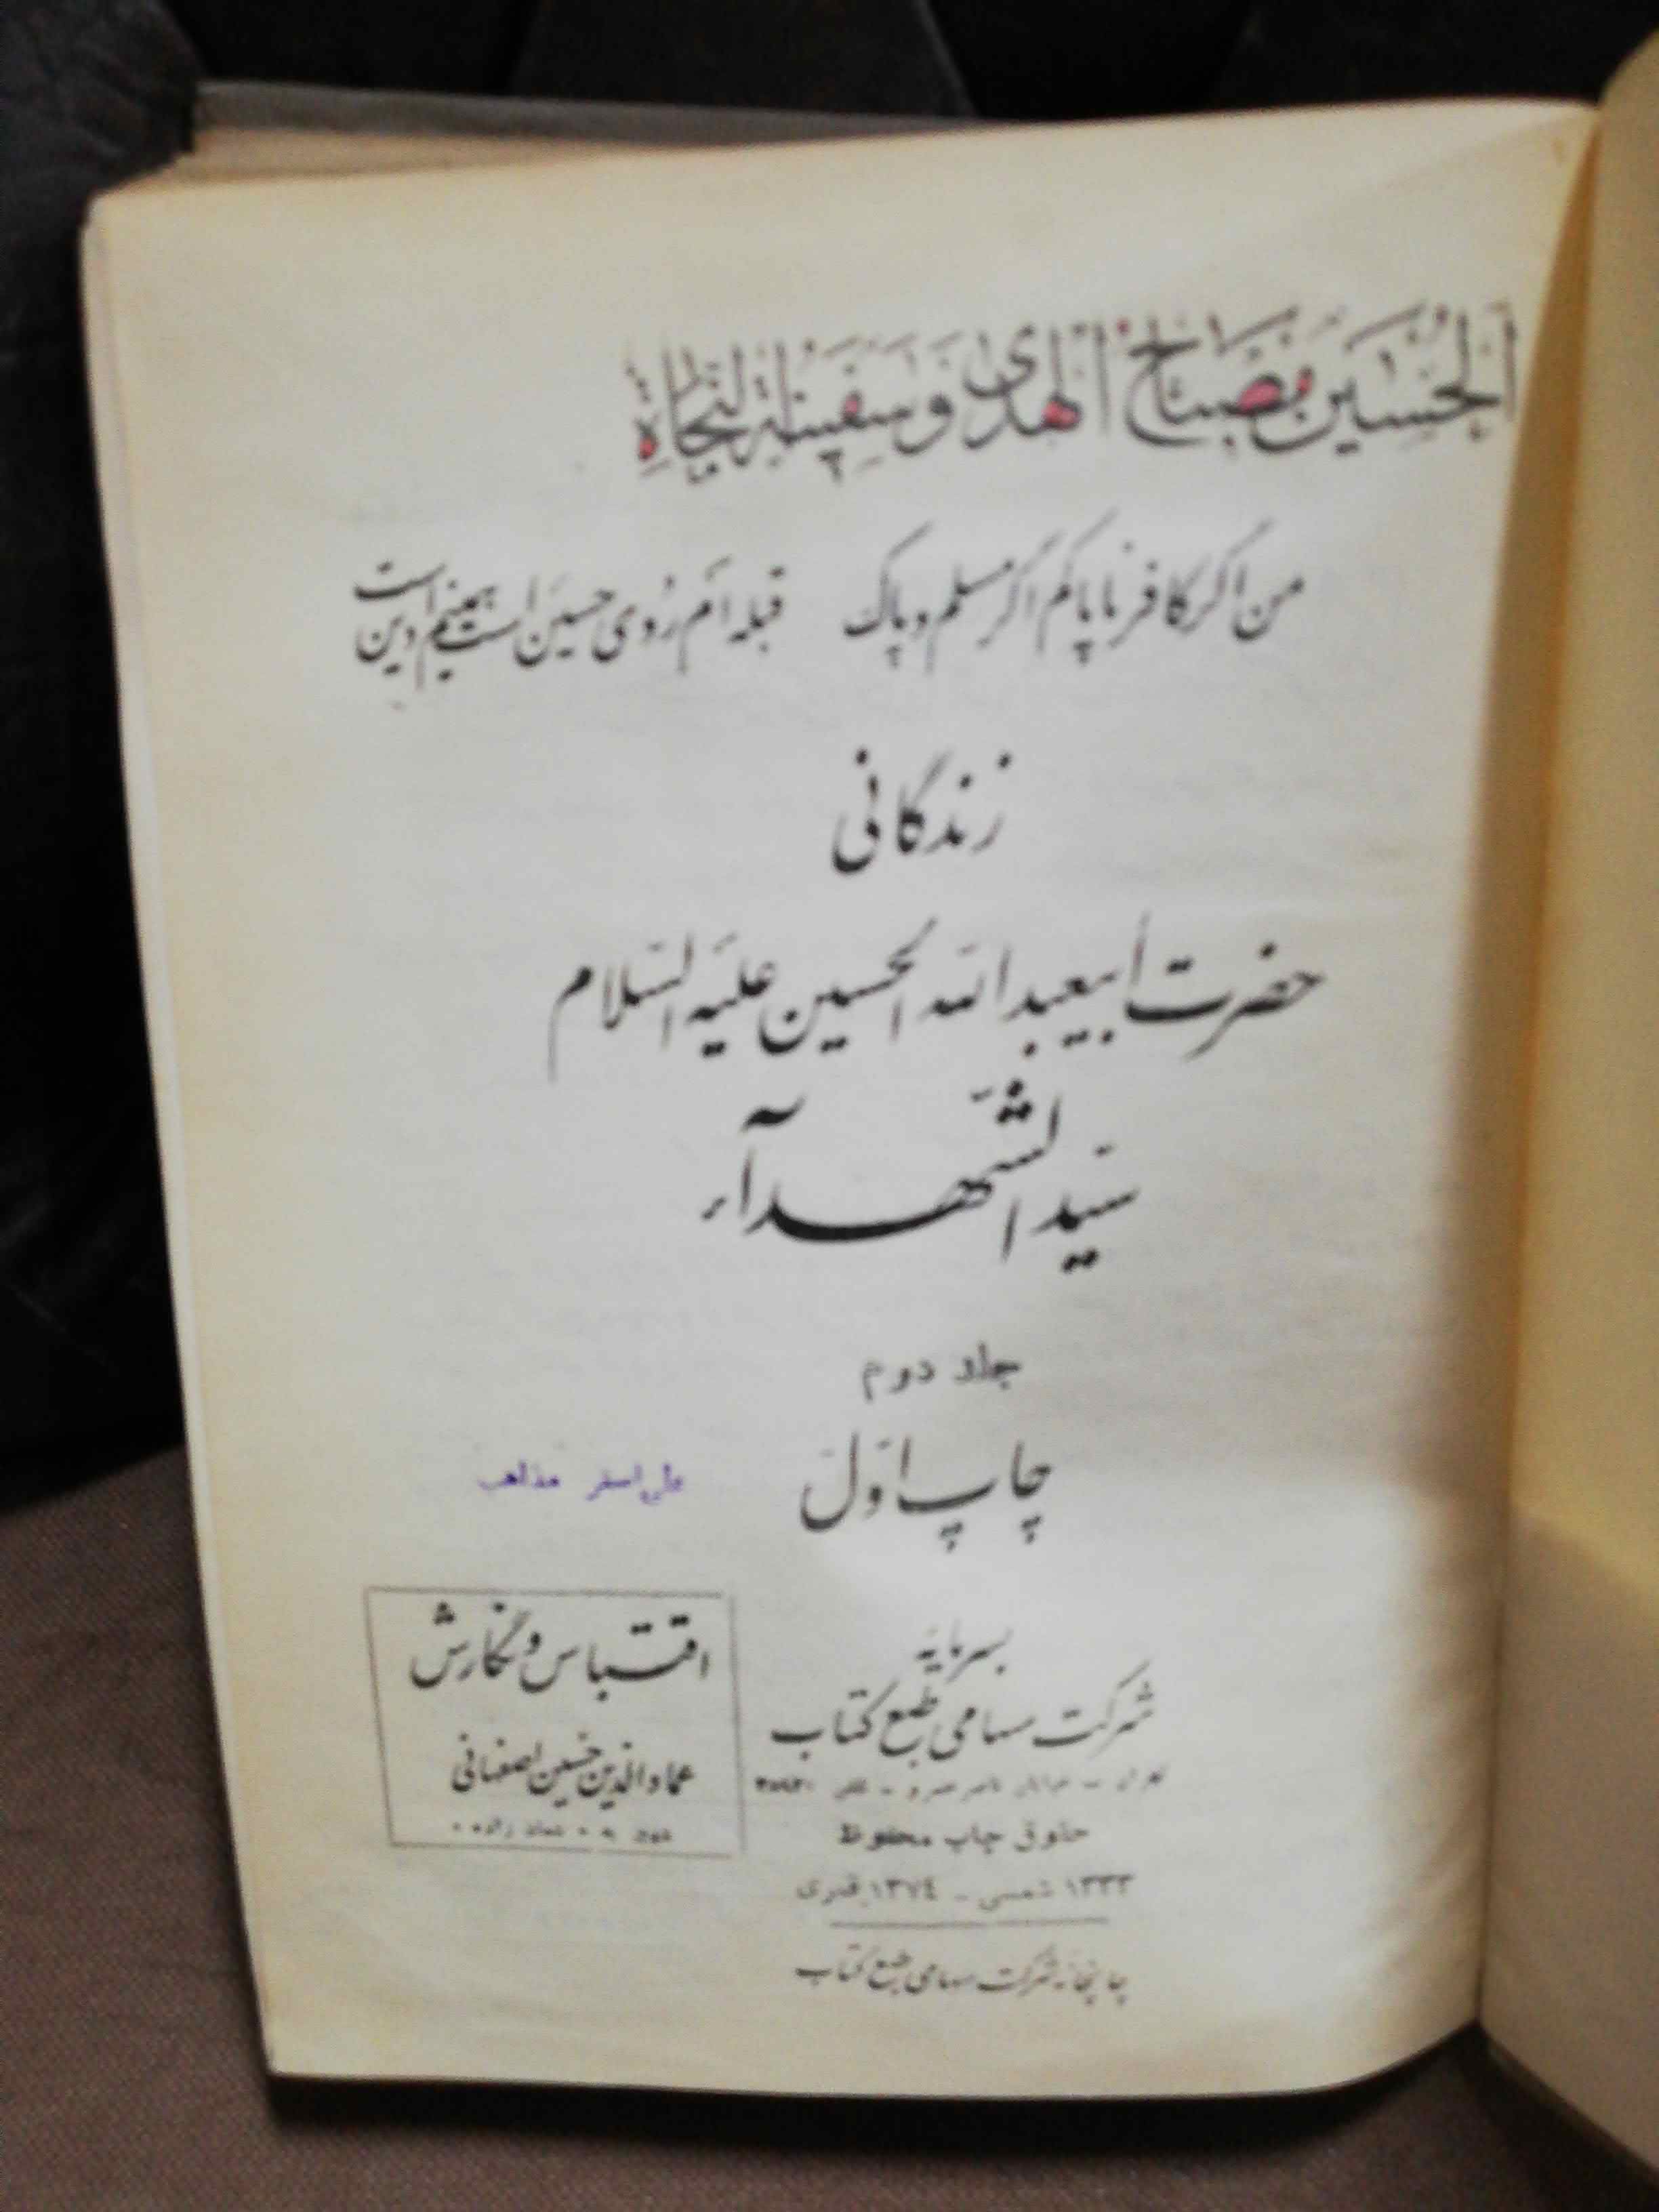 الحسین مصباح الهدی و سفینة النجاة
من اگر کافر ناپاکم اگر مسلم و پاک قبله ام روی حسین است همینم دین است
زندگانی
حضرت ابیعبدالله الحسین علیه السلام
سید الشهداء
جلد دوم
چاپ اول
علی اصغر مذاهب
بسرمایه
شرکت سهامی طبع کتاب
تهران - خیابان ناصر خسرو - تلفن
حقوق چاپ محفوظ
۱۳۳۳ شمسی - ۱۳۷٤ قمری
چاپخانه شرکت سهامی طبع کتاب
اقتباس و نگارش
عمادالدین حسین اصفهانی